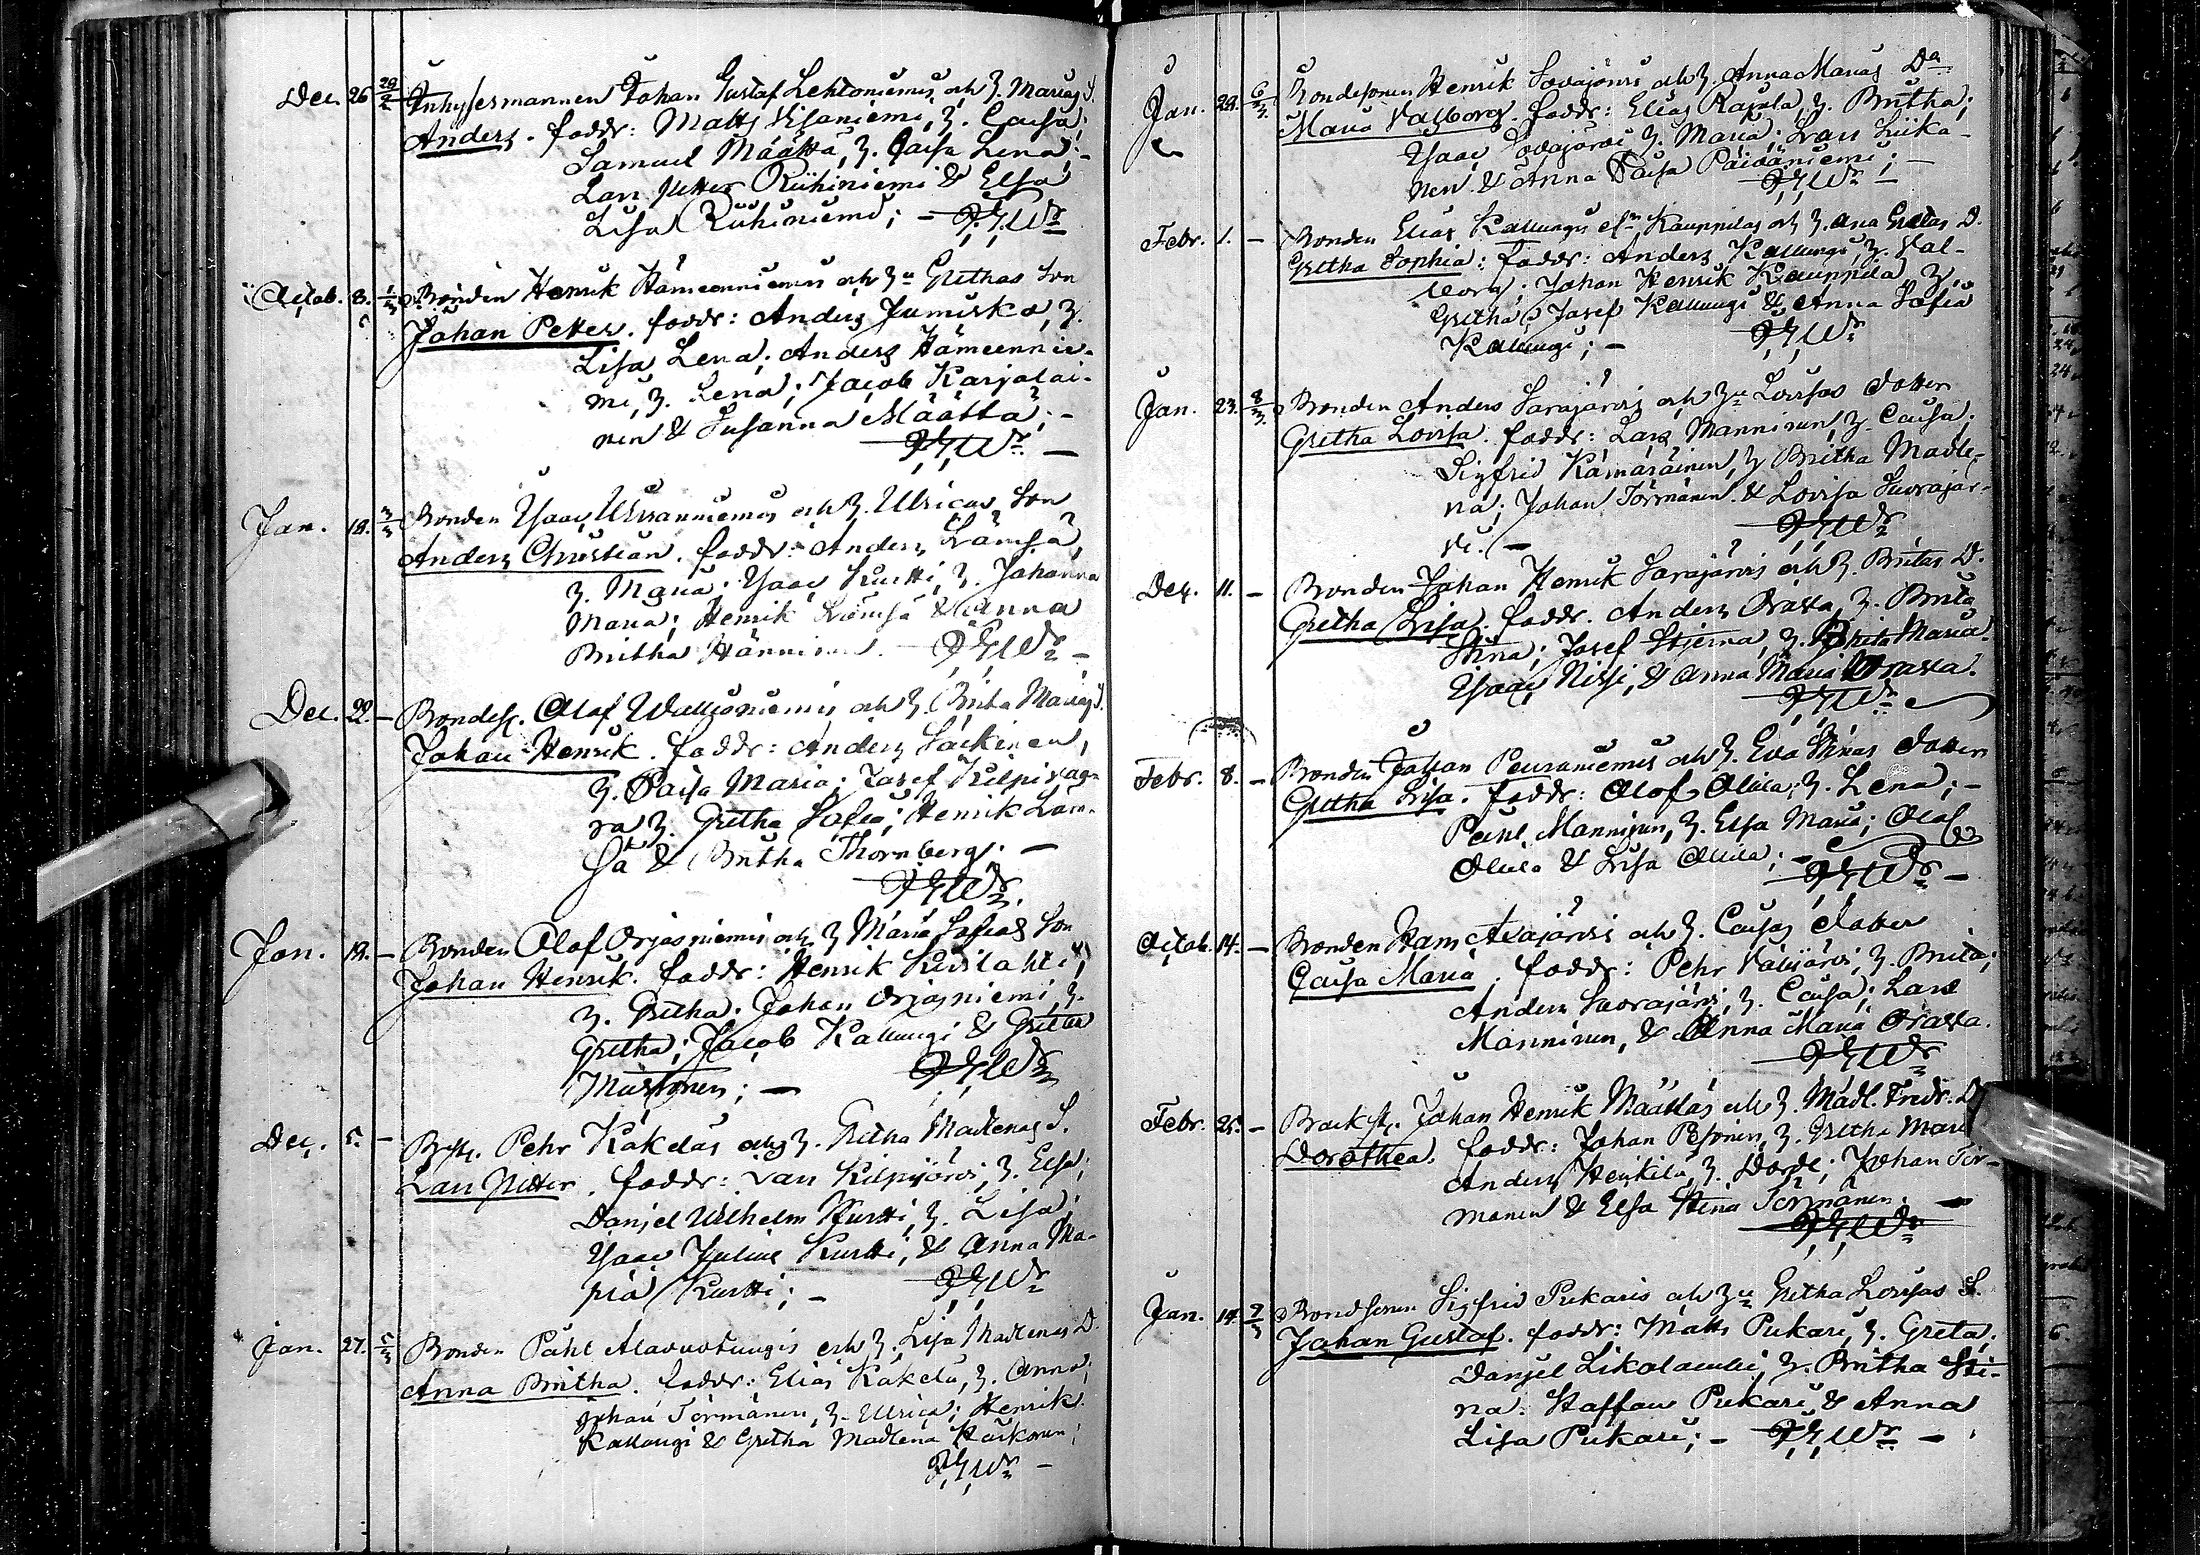 Dec. 26 29/2 Inhysesmannen Johan Gustaf Lehtoniemis och h. Marias S.
Anders. faddr: Matts Ylianiemi, h. Caisa;
Samuel Määttä, h. Caisa Lena;
Lars Petter Riihiniemi & Elsa
Lisa Riihiniemi; –
Octob. 8. 1/3 Bonden Henrik Hämeenniemis och hu Grethas Son
Johan Petter. faddr: Anders Jumisko, h.
Lisa Lena; Anders Hämeennie-
mi, h. Lena; Jacob Karjalai-
nen & Susanna Määttä; –
Jan. 18. 3/3 Bonden Isaac Ulricas Son
Anders Christian. faddr: Anders Lämsä,
h. Maria; Isaac Kurtti, h. Johanna
Maria; Henrik Lämsä & Anna
Britha Hänninen. –
Dec. 22. – Bondes. Olof och h. Brita Marias S.
Johan Henrik. faddr: Anders Särkinen,
h. Caisa Maria; Josef Kilpivaa-
ra h. Gretha Sofia; Henrik Läm-
sä & Britha Thornberg; –
Jan. 19. – Bonden Olof Orjasniemis och h. Maria Sofias Son
Johan Henrik. faddr: Henrik Kivilahti,
h. Gretha; Johan Orjasniemi, h.
Gretha; Jacob Kallungi & Gretha
Mustonen; –
Dec. 5. – Pehr Käkeläs och h. Gretha Madlenas S.
Lars Petter. faddr: Lars Kilpijärvi, h. Elsa;
Daniel Wilhelm Kurtti, h. Lisa;
Isaac Julius Kurtti, & Anna Ma-
ria Kurtti; –
Jan. 27. 5/3 Bonden Påhl Alavuotungis och h. Lisa Madlenas D.
Anna Britha. faddr: Elias Käkelä, h. Anna;
Johan Törmänen, h. Ulrica; Henrik
Kallungi & Gretha Madlena Härkönen;
Jan. 28. 6/3. Bondesonen Henrik och h. Anna Marias Dr
Maria Valborg. faddr: Elias Rajala, h. Britha;
Isaac h. Maria; Lars Liika-
nen & Anna Caisa Päivänniemi; –
Febr. 1. – Bonden Elias Kallungis Kauppilas och h. Ana Gretas D.
Gretha Sophia: faddr: Anders Kallungi, h. Val-
borg; Johan Henrik Kauppila h.
Gretha; Josef Kallungi & Anna Sofia
Kallungi; –
Jan. 23. 8/3. Bonden Anders Sarajärvis och hu Lovisas Dotter
Gretha Lovisa. faddr: Lars Manninen, h. Caisa;
Sigfrid Kämäräinen, h Britha Madle-
na; Johan Törmänen & Lovisa Suorajär-
vi. –
Dec. 11. – Bonden Johan Henrik Sarajärvis och h. Britas D.
Gretha Lisa. faddr. Anders Orava, h. Brita
Stina; Josef Stjerna, h. Brita Maria;
Isaac Nissi, & Anna Maria Orava.
Febr. 8. – Bonden Johan Peuraniemis och h. Eva Stinas Dotter
Gretha Lisa. faddr: Olof Ollila, h. Lena; –
Pehl Manninen, h. Elsa Maria; Olof
Ollila & Lisa Ollila; –
Octob. 14. – Bonden Hans Avajärvis och h. Caisas Dotter
Caisa Maria. faddr: Pehr h. Brita;
Anders Suorajärvi, h. Caisa; Lars
Manninen, & Anna Maria Orava.
Febr. 25. – Johan Henrik Määttäs och h. Madl. Fredr. D
Dorothea. faddr: Johan Pesonen, h. Gretha Maria
Anders Heikkilä, h. Dorde; Johan Tör-
mänen & Elsa Stina Törmänen. –
Jan. 14. 9/3 Bondsonen Sigfrid Pukaris och hu Gretha Lovisas S.
Johan Gustaf. faddr: Matts Pukari, h. Greta;
Danjel h. Britha Sti-
na: Staffan Pukari & Anna
Lisa Pukari; –